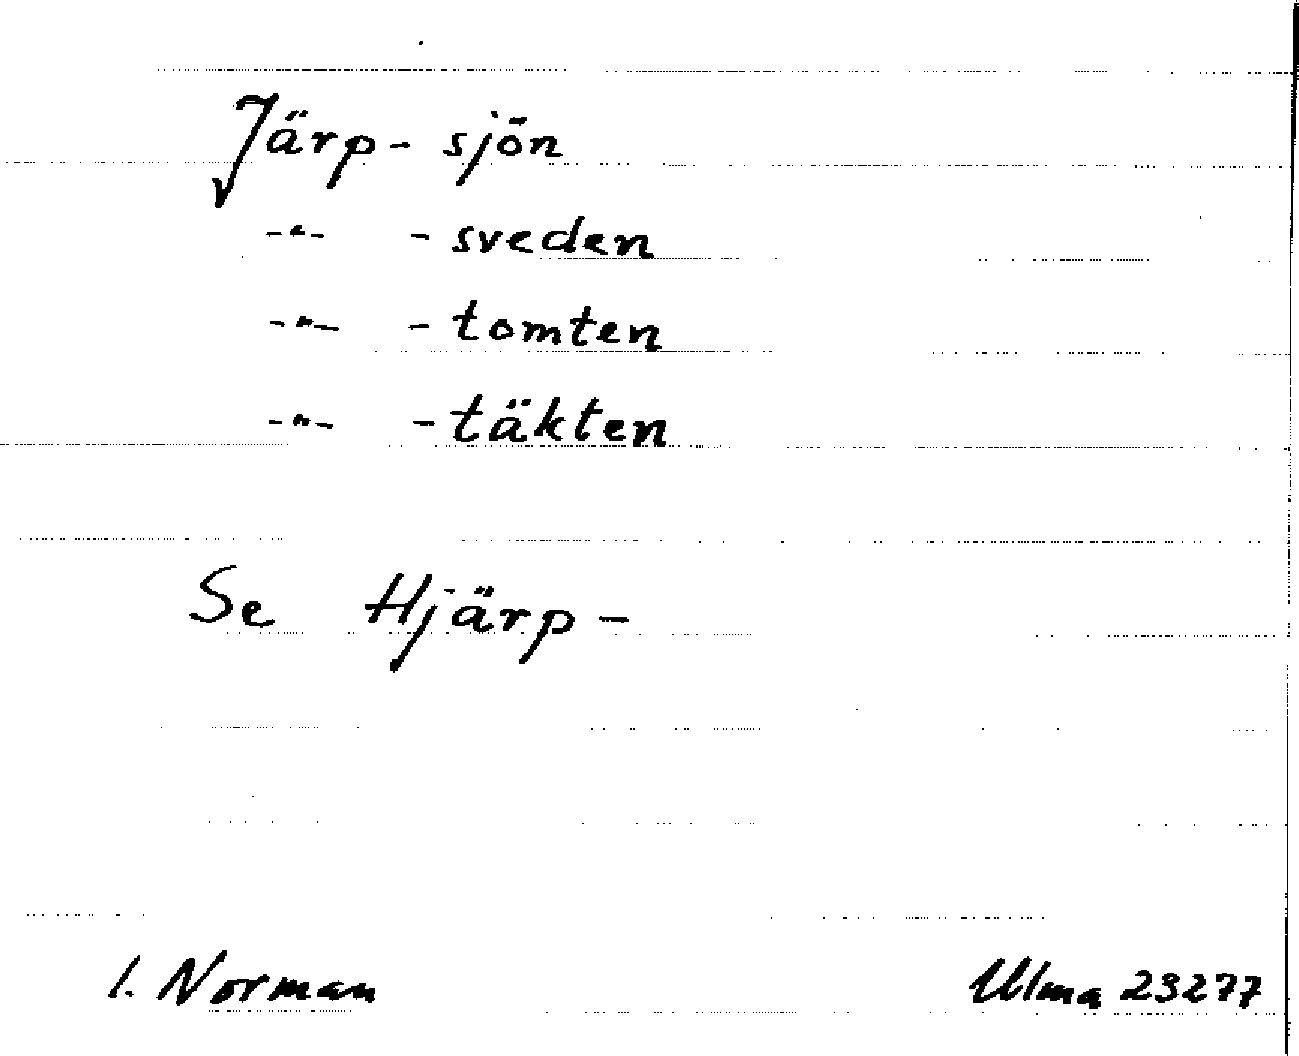 Järp- sjön
-"- -sveden
-"- -tomten
-"- -täkten
Se Hjärp-
I. Norman Ulma 23277